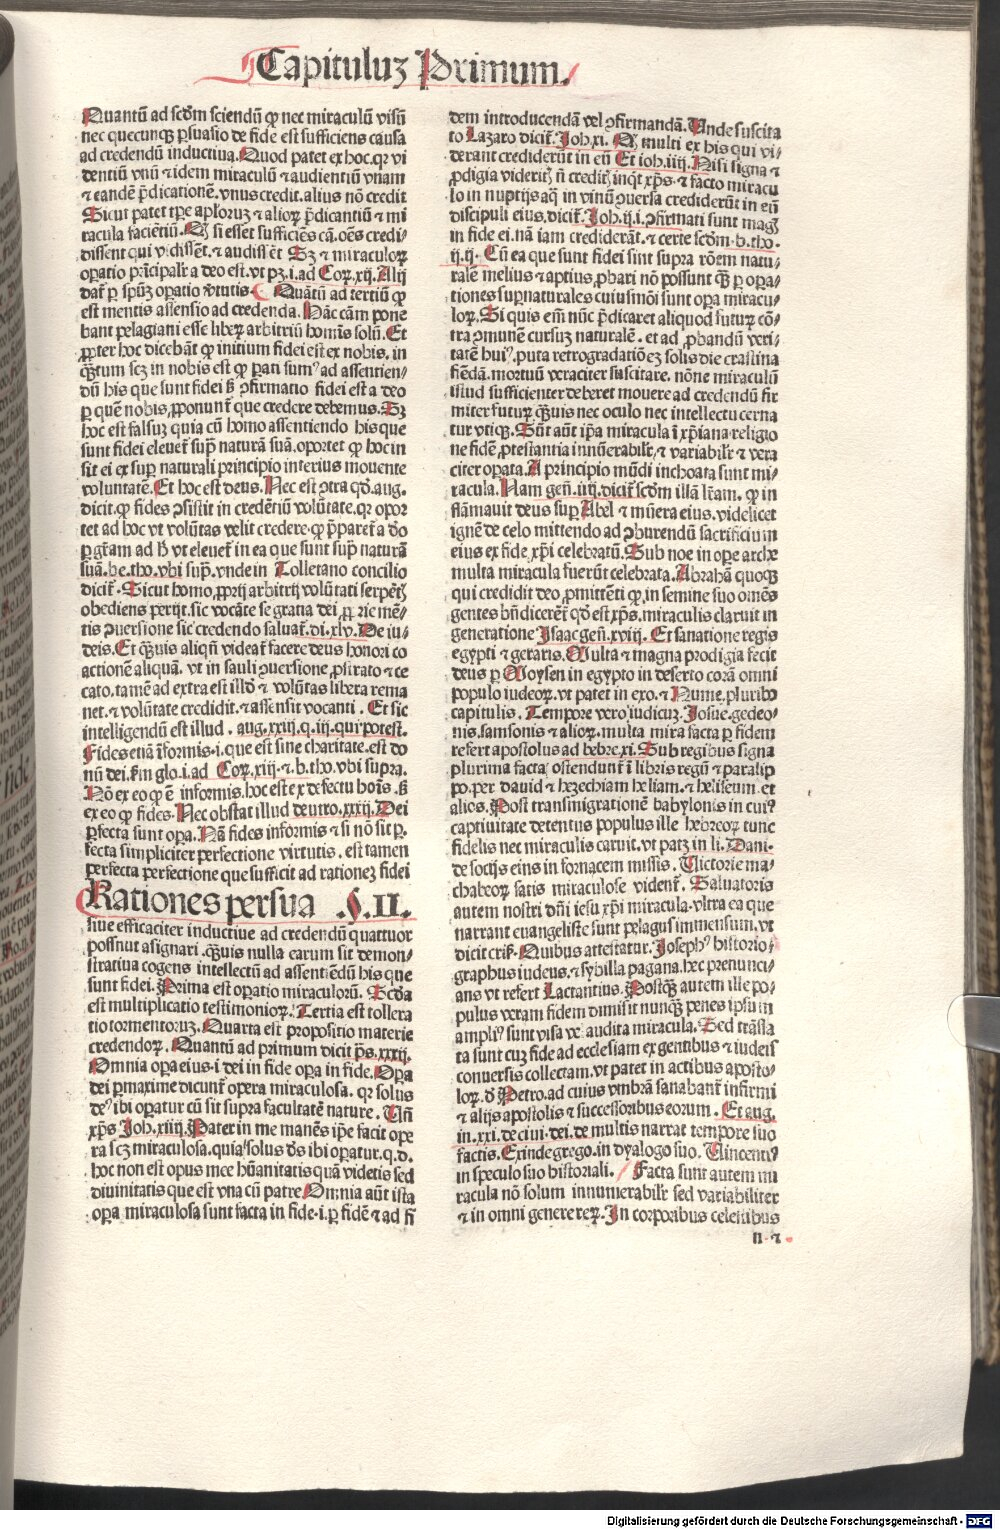 Capituluz Primum.
Quantū ad scd̄m sciendū ꝙ nec miraculū visū
nec quecunqꝫ ꝑsuasio de fide est sufficiens causa
ad credendū inductiua. Quod patet ex hoc. qꝛ vi
dentiū vnū ⁊ idem miraculū ⁊ audientiū vnam
⁊ eandē p̄dicationē. vnus credit. alius nō credit
Sicut patet tp̄e apl̓oꝝ ⁊ alioꝝ p̄dicantiū ⁊ mi
racula faciētiū. Qꝫ si esset sufficiēs cā. oēs credi⸗
dissent qui vidissēt. ⁊ audissēt Sꝫ ⁊ miraculoꝝ
oꝑatio prīcipalr̄ a deo est. vt pꝫ. i. ad Coꝝ. xij. Alij
dat̄ ꝑ spūꝫ oꝑatio v̄tutis. Quātū ad tertiū ꝙ
est mentis assensio ad credenda. Hāc cām pone
bant pelagiani esse liberꝝ arbitriū homīs solū. Et
ꝓpter hoc dicebāt ꝙ initium fidei est ex nobis. in
qꝫtum scꝫ in nobis est ꝙ pati sumꝰ ad assentien⸗
dū his que sunt fidei sꝫ ꝯfirmatio fidei est a deo
ꝑ quē nobis ꝓponunt̄ que credere debemus. Sꝫ
hoc est falsuꝫ quia cū homo assentiendo his que
sunt fidei eleuet̄ supꝰ naturā suā. oportet ꝙ hoc in
sit ei ex supernaturali principio interius mouente
voluntatē. Et hoc est deus. Nec est ꝯtra qd̓. aug.
dicit. ꝙ fides ꝯsistit in credētiū volūtate. qꝛ opor
tet ad hoc vt volūtas velit credere. ꝙ p̄paret̄ a dō
ꝑ gr̄am ad hͦ vt eleuet̄ in ea que sunt supꝰ naturā
suā. be. tho. vbi supꝰ. vnde in Tolletano concilio
dicit̄. Sicut homo ꝓprij arbitrij volūtati serpēti
obediens perijt. sic vocāte se gratia dei ꝓprie mē⸗
tis ꝯuersione sic credendo saluat̄. di. xlv. De iu⸗
deis. Et qꝫuis aliqn̄ videat̄ facere deus honori co
actionē aliquā. vt in sauli ꝯuersione ꝓstrato ⁊ ce
cato. tamē ad extra est illd̓ ⁊ volūtas libera rema
net. ⁊ volūtate credidit. ⁊ assensit vocanti. Et sic
intelligendū est illud. aug. xxiij. q. iij. qui potest.
Fides etiā īformis. i. que est sine charitate. est do
nū dei. ẜm glo. i. ad Coꝝ. xiij. ⁊ b. tho. vbi supra.
Nō ex eo ꝙ ē informis. hoc est ex defectu hoīs. sꝫ
ex eo ꝙ fides. Nec obstat illud deutro. xxxij. Dei
ꝑfecta sunt oꝑa. Nā fides informis ⁊ si nō sit ꝑ⸗
fecta simpliciter perfectione virtutis. est tamen
perfecta perfectione que sufficit ad rationeꝫ fidei
Rationes persua .§. II.
siue efficaciter inductiue ad credendū quattuor
possunt asignari. qꝫuis nulla earum sit demon⸗
stratiua cogens intellectū ad assentiēdū his que
sunt fidei. Prima est oꝑatio miraculorū. Scd̄a
est multiplicatio testimonioꝝ. Tertia est tollera
tio tormentoruꝫ. Quarta est propositio materie
credendoꝝ. Quantū ad primum dicit ps̄. xxxij.
Omnia oꝑa eius. i. dei in fide oꝑa in fide. Oꝑa
dei ꝑmaxime dicunt̄ opera miraculosa. qꝛ solus
deꝰ ibi oꝑatur cū sit supra facultatē nature. Vn̄
xp̄s Joh. xiiij. Pater in me manēs ip̄e facit ope
ra scꝫ miraculosa. quia solus d̄s ibi oꝑatur. q. d.
hoc non est opus mee hūanitatis quā videtis sed
diuinitatis que est vna cū patre Omnia aūt ista
oꝑa miraculosa sunt facta in fide. i. ꝓ fidē ⁊ ad fi
dem introducendā vel ꝯfirmandā. Unde suscita
to Lazaro dicit̄. Joh. xi. Qꝫ multi ex his qui vi⸗
derant crediderūt in eū Et ioh. iiij. Nisi signa ⁊
ꝓdigia videritꝭ nō creditꝭ inqͥt xp̄s. ⁊ facto miracu
lo in nuptijs aq̄ in vinū ꝯuersa crediderūt in eū
discipuli eius. dicit̄. Joh. ij. i. ꝯfirmati sunt magꝭ
in fide ei. nā iam crediderāt. ⁊ certe scd̄m. b. tho.
ij. ij. Cū ea que sunt fidei sint supra rōem natu⸗
ralē melius ⁊ aptius ꝓbari nō possunt qꝫ ꝑ oꝑa⸗
tiones supnaturales cuiusmōi sunt oꝑa miracu⸗
loꝝ. Si quis em̄ nūc p̄dicaret aliquod futurꝝ cō⸗
tra ꝯmunē cursuꝫ naturalē. et ad ꝓbandū veri⸗
tatē huiꝰ. puta retrogradatiōeꝫ solis die crastina
fiēdā. mortuū veraciter suscitare. nōne miraculū
istud sufficienter deberet mouere ad credendū fir
miter futurꝝ qꝫuis nec oculo nec intellectu cerna
tur vtiqꝫ. Sūt aūt ip̄a miracula ī xp̄iana religio
ne fidē ꝓtestantia innūerabilr̄ ⁊ variabilr̄ ⁊ vera
citer oꝑata. A principio mūdi inchoata sunt mi⸗
racula. Nam gen̄. iiij. dicit̄ scd̄m illā lr̄am. ꝙ in
flāmauit deus supꝰ Abel ⁊ mūera eius. videlicet
ignē de celo mittendo ad ꝯburendū sacrificium
eius ex fide xp̄i celebratū. Sub noe in oꝑe arche
multa miracula fuerūt celebrata. Abrahā quoqꝫ
qui credidit deo ꝓmittēti ꝙ in semine suo omēs
gentes bn̄dicerēt̄ qd̓ est xp̄s. miraculis claruit in
generatione Isaac gen̄. xviij. Et sanatione regis
egypti ⁊ geraris. Multa ⁊ magna prodigia fecit
deus ꝑ Moysen in egypto in deserto corā omni
populo iudeoꝝ. vt patet in exo. ⁊ Nume. pluribꝰ
capitulis. Tempore vero iudicuꝫ. Josue. gedeo⸗
nis. samsonis ⁊ alioꝝ. multa mira facta ꝑ fidem
refert apostolus ad hebre. xi. Sub regibus signa
plurima facta ostendunt̄ ī libris regū ⁊ paralip
po. per dauid ⁊ hezechiam heliam. ⁊ heliseum et
alios. Post transmigrationē babylonis in cuiꝰ
captiuitate detentus populus ille hebreoꝝ tunc
fidelis nec miraculis caruit. vt patꝫ in li. Dani.
de socijs eius in fornacem missis. Victorie ma⸗
chabeoꝝ satis miraculose vident̄. Saluatoris
autem nostri dn̄i iesu xp̄i miracula vltra ea que
narrant euangeliste sunt pelagus immensum. vt
dicit cris̄. Quibus attestatur. Josephꝰ historio⸗
graphus iudeus. ⁊ sybilla pagana. hec prenunci⸗
ans vt refert Lactantius. Postqꝫ autem ille po⸗
pulus veram fidem dimisit nunqꝫ penes ipsum
ampliꝰ sunt visa vel audita miracula. Sed trāsla
ta sunt cuꝫ fide ad ecclesiam ex gentibus ⁊ iudeis
conuersis collectam. vt patet in actibus aposto⸗
loꝝ. d̓ Petro. ad cuius vmbrā sanabant̄ infirmi
⁊ alijs apostolis ⁊ successoribus eorum. Et aug.
in. xxi. de ciui. dei. de multis narrat tempore suo
factis. Et inde grego. in dyalogo suo. Vincentiꝰ
in speculo suo historiali. Facta sunt autem mi
racula nō solum innumerabilr̄ sed variabiliter
⁊ in omni genere reꝝ. In corporibus celestibus
n 2
Digitalisierung gefördert durch die Deutsche Forschungsgemeinschaft - DFG